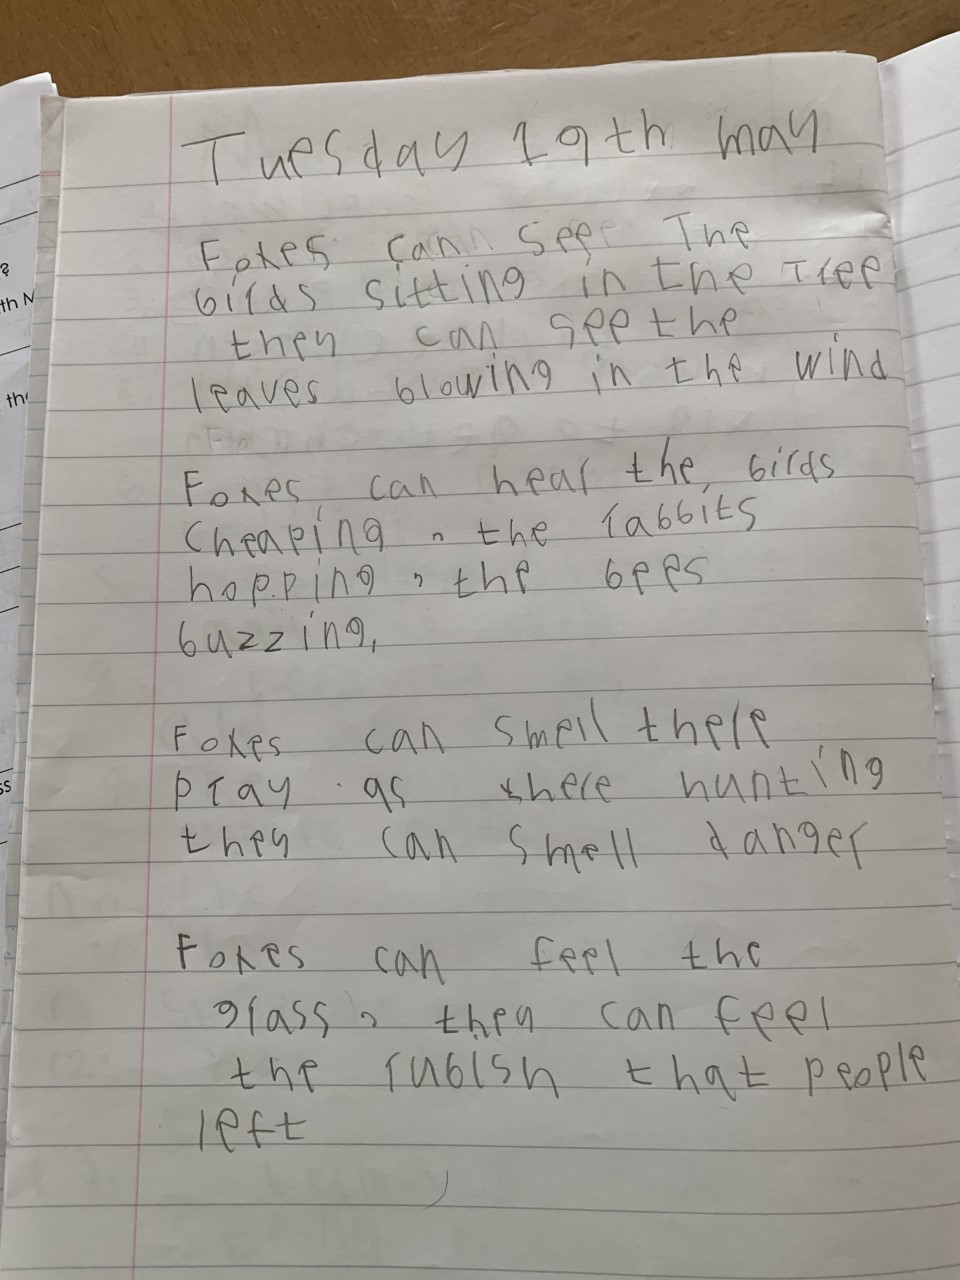 Tuesday 19th may
Foxes can see The
birds sitting in the Tree
they can see the
leaves blowing in the wind
Foxes can hear the, birds
Cheaping, the rabbits
hopping, the bees
buzzing,
Foxes can smell there
pray as there hunting
they can smell danger
Foxes can feel the
grass, they can feel
the rubish that people
left
?
th N
the
ss